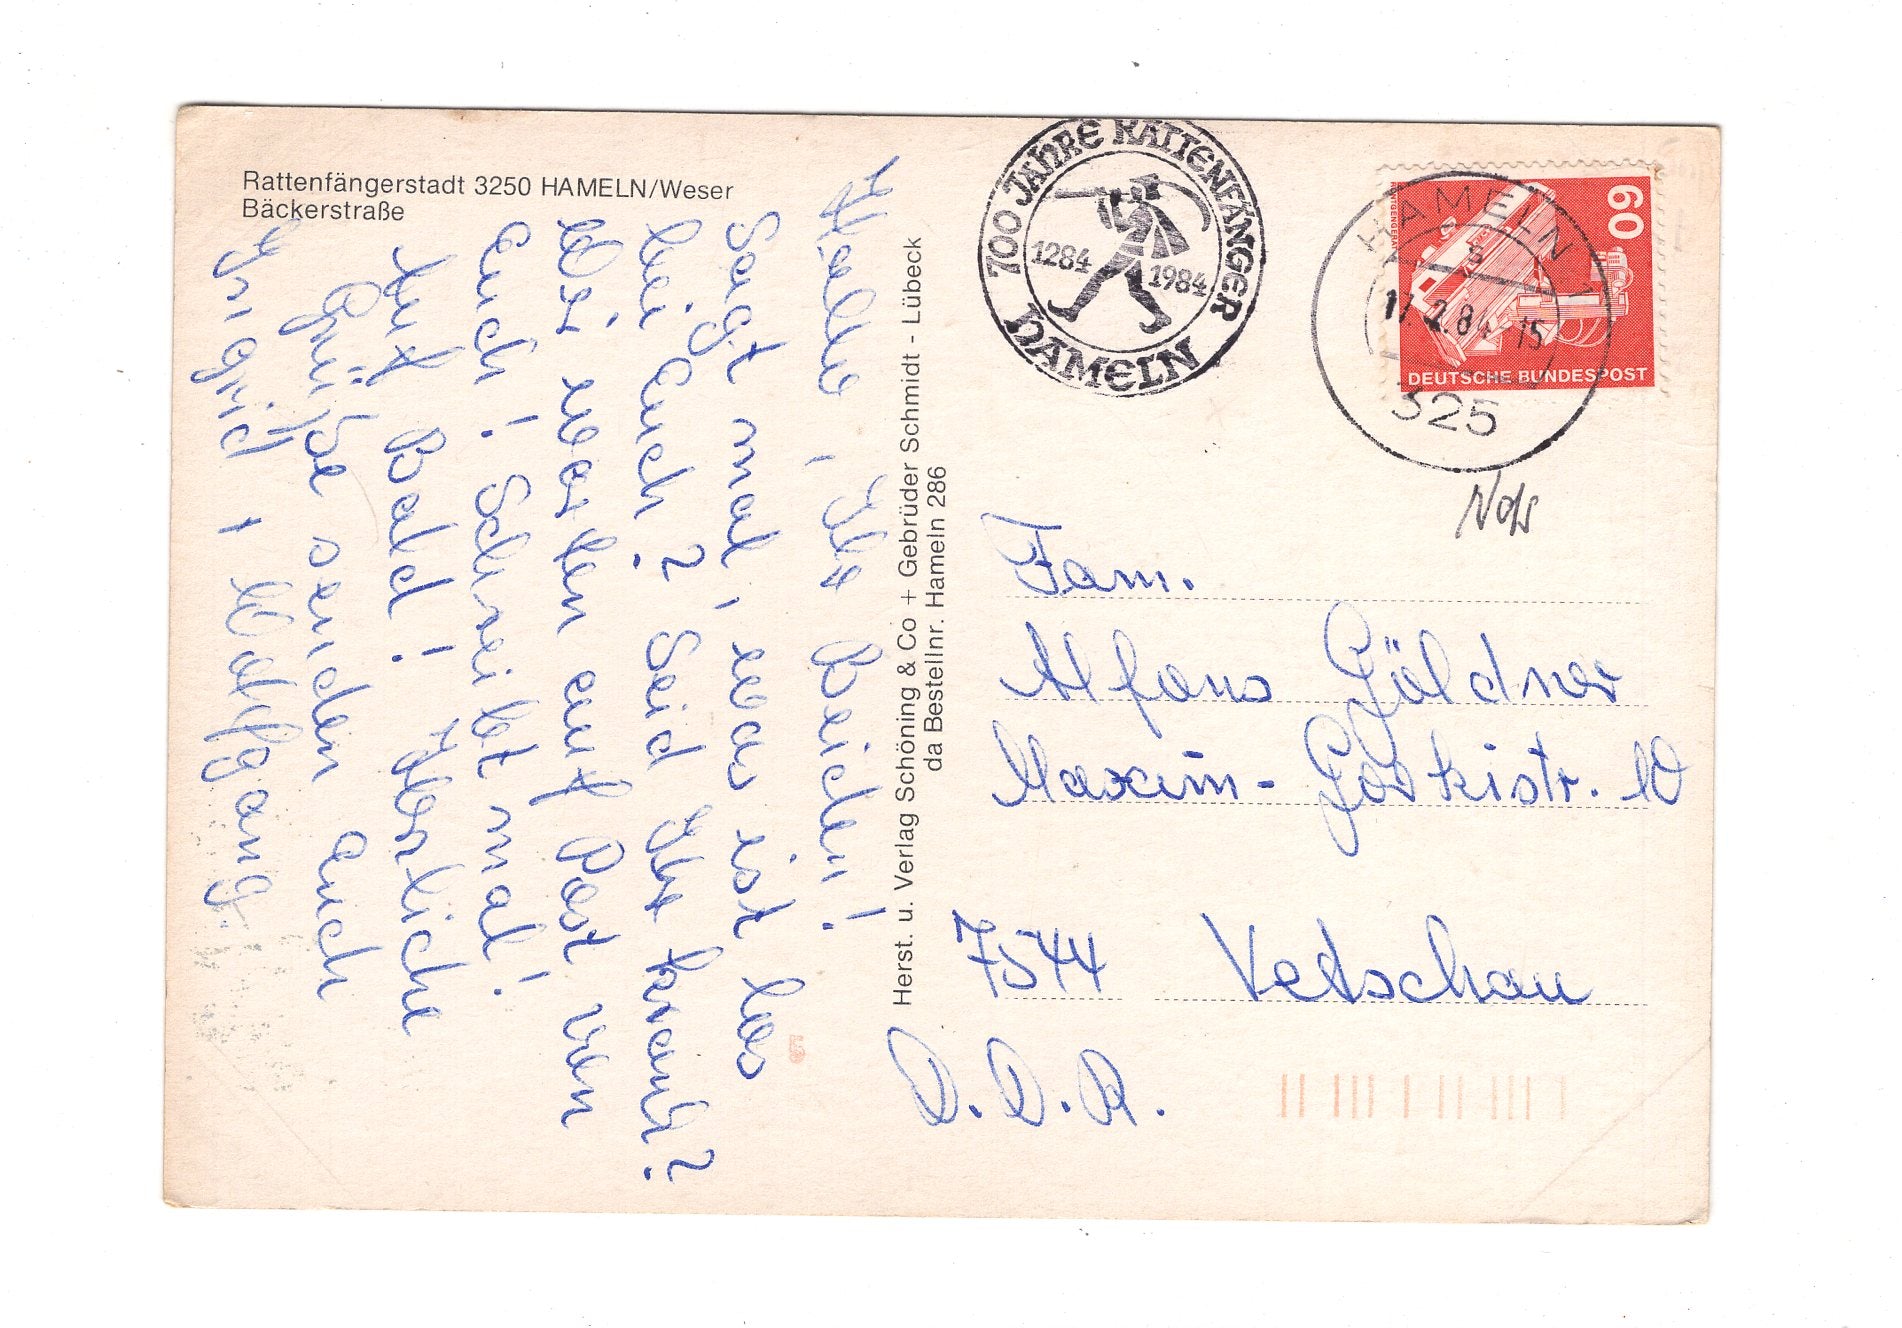 Rattenfängerstadt 3250 HAMELN/Weser
Bäckerstraße
Hallo, Ihr Beiden!
Sagt mal, was ist los
bei Euch? Seid Ihr krank?
Wir warten auf Post von
Euch! Schreibt mal!
Auf Bald! Herzliche
Grüße senden auch
Ingrid + Wolfgang.
Herst. u. Verlag Schöning & Co + Gebrüder Schmidt - Lübeck
da Bestellnr. Hameln 286
700 JAHRE RATTENFÄNGER
1284
1984
HAMELN
HAMELN 1
s
17.2.84-15
325
60
DEUTSCHE BUNDESPOST
Fam.
Alfons Göldner
Maxim-Gorkistr. 10
7544 Vetschau
D.D.R.